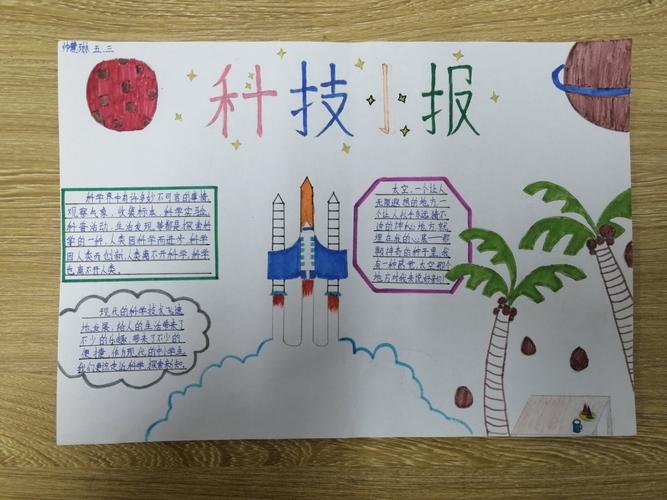 五.三
科技小报
科学界中有许多妙不可言的事情,
观察气象、收集标本、科学实验、
科普活动、生活发现,等都是探索科
学的一种,人类因科学而进步,科学
因人类而创新,人类离不开科学,科学
也离不开人类。
太空,一个让人
无限遐想的地方,一
个让人似乎永远摸不
透的神秘地方,就
埋在我的心底——那
颗神奇的种子里,我
有一种感觉,太空那个
地方对我来说好亲切!
现代的科学技术飞速
地发展,给人的生活带来了
不少的乐趣,带来了不少的
便捷,作为现代的中小学生
我们更应走近科学,探索新知.